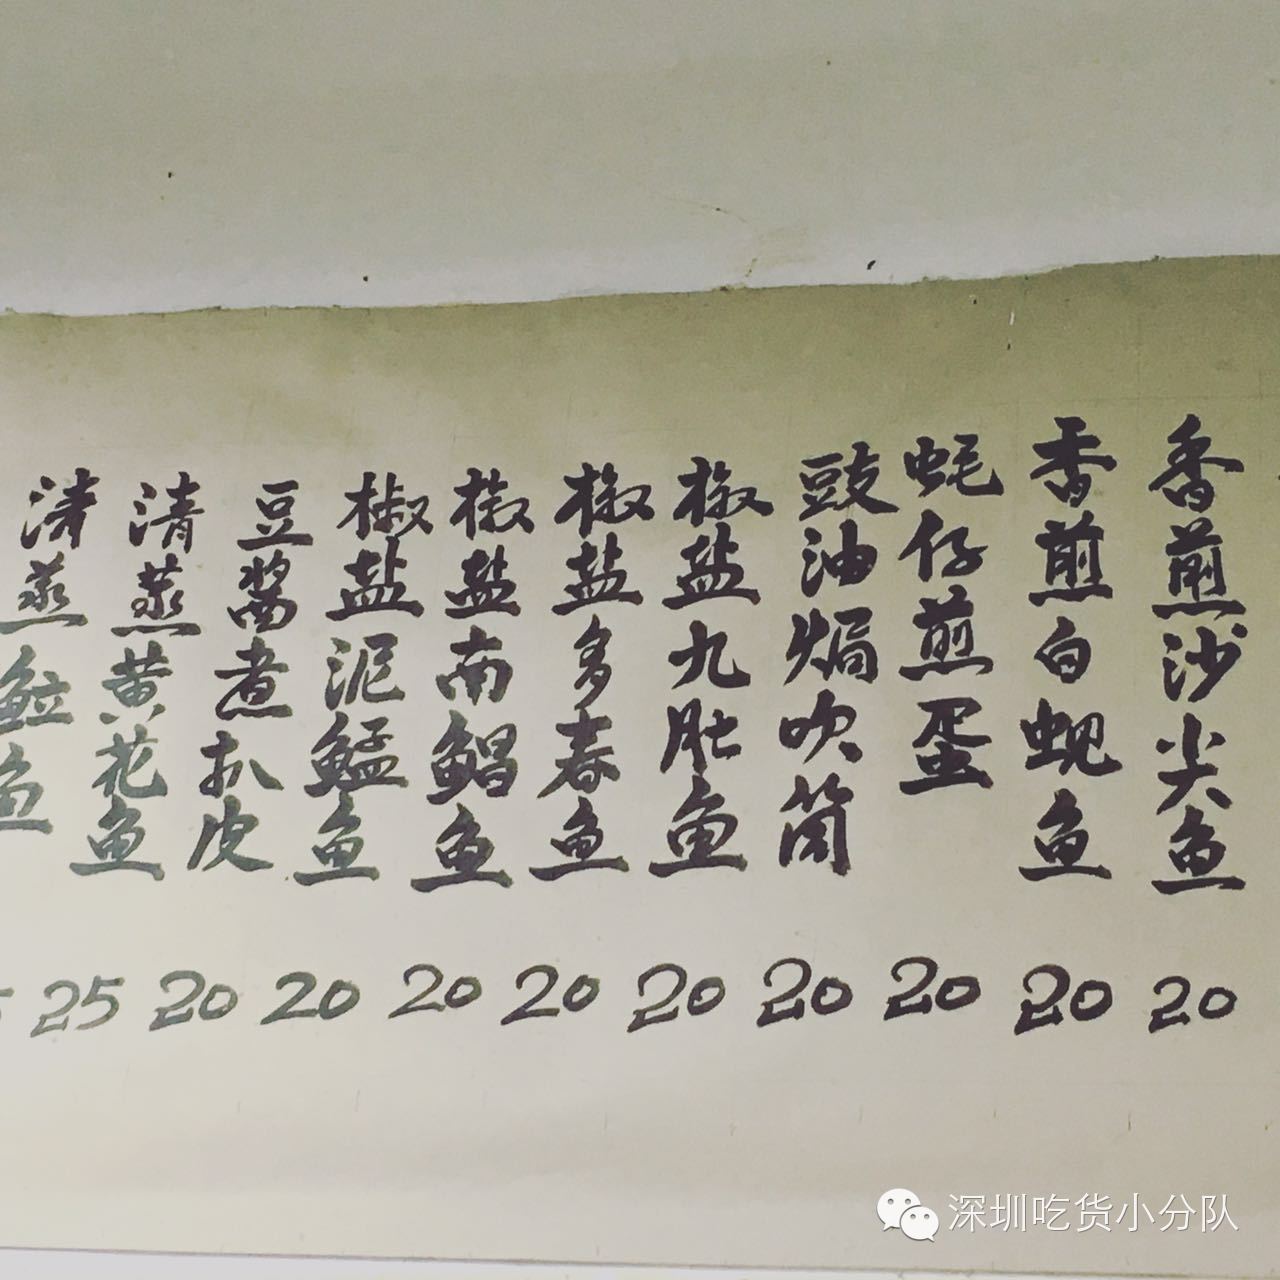 香煎沙尖鱼 20
香煎白蚬鱼 20
蚝仔煎蛋 20
豉油焗吹筒 20
椒盐九肚鱼 20
椒盐多春鱼 20
椒盐南鲳鱼 20
椒盐泥鯭鱼 20
豆酱煮扒皮 20
清蒸黄花鱼 25
清蒸 鱼
深圳吃货小分队